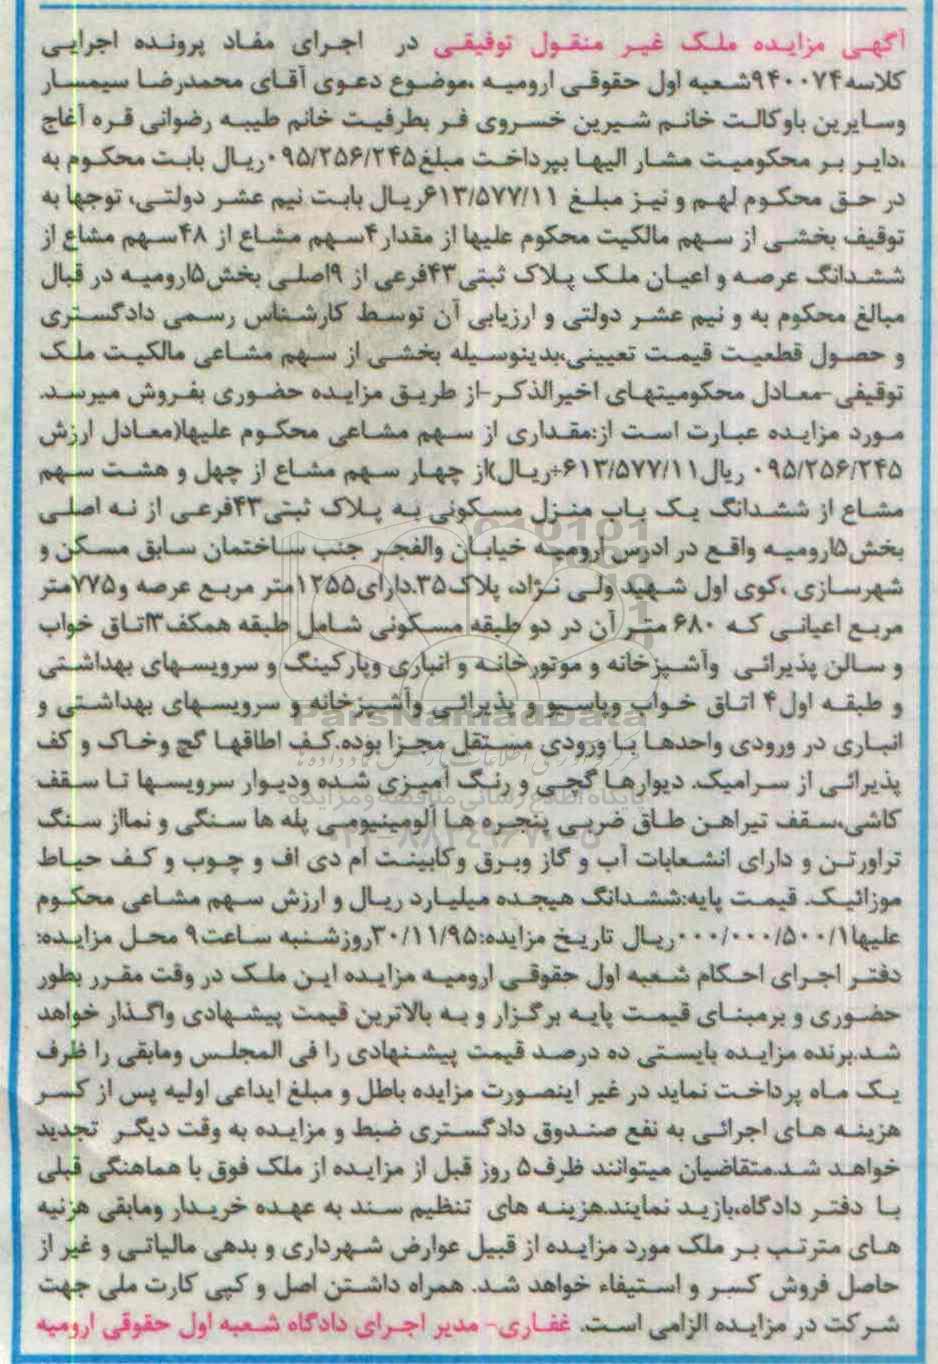 آگهی مزایده ملک غیر منقول توقیفی در اجرای مفاد پرونده اجرایی
کلاسه ۹۴۰۰۷۴شعبه اول حقوقی ارومیه ،موضوع دعوی آقای محمدرضا سیمسار
وسایرین باوکالت خانم شیرین خسروی فر بطرفیت خانم طیبه رضوانی قره آغاج
،دایر بر محکومیت مشار الیها بپرداخت مبلغ۰۹۵/۲۵۶/۲۴۵ریال بابت محکوم به
در حق محکوم لهم و نیز مبلغ ۶۱۳/۵۷۷/۱۱ریال بابت نیم عشر دولتی، توجها به
توقیف بخشی از سهم مالکیت محکوم علیها از مقدار۴سهم مشاع از ۴۸سهم مشاع از
ششدانگ عرصه و اعیان ملک پلاک ثبتی۴۳فرعی از ۹اصلی بخش۵ارومیه در قبال
مبالغ محکوم به و نیم عشر دولتی و ارزیابی آن توسط کارشناس رسمی دادگستری
و حصول قطعیت قیمت تعیینی،بدینوسیله بخشی از سهم مشاعی مالکیت ملک
توقیفی-معادل محکومیتهای اخیرالذکر-از طریق مزایده حضوری بفروش میرسد.
مورد مزایده عبارت است از:مقداری از سهم مشاعی محکوم علیها(معادل ارزش
۰۹۵/۲۵۶/۲۴۵ ریال۶۱۳/۵۷۷/۱۱+ریال)از چهار سهم مشاع از چهل و هشت سهم
مشاع از ششدانگ یک باب منزل مسکونی به پلاک ثبتی۴۳فرعی از نه اصلی
بخش۵ارومیه واقع در ادرس ارومیه خیابان والفجر جنب ساختمان سابق مسکن و
شهرسازی ،کوی اول شهید ولی نژاد، پلاک۳۵.دارای۱۲۵۵متر مربع عرصه و۷۷۵متر
مربع اعیانی که ۶۸۰ متر آن در دو طبقه مسکونی شامل طبقه همکف۳اتاق خواب
و سالن پذیرائی وآشپزخانه و موتورخانه و انباری وپارکینگ و سرویسهای بهداشتی
و طبقه اول۴ اتاق خواب وپاسیو و پذیرائی وآشپزخانه و سرویسهای بهداشتی و
انباری در ورودی واحدها با ورودی مستقل مجزا بوده.کف اطاقها گچ وخاک و کف
پذیرائی از سرامیک، دیوارها گچی و رنگ آمیزی شده ودیوار سرویسها تا سقف
کاشی،سقف تیراهن طاق ضربی پنجره ها آلومینیومی پله ها سنگی و نمااز سنگ
تراورتن و دارای انشعابات آب و گاز وبرق وکابینت ام دی اف و چوب و کف حیاط
موزائیک. قیمت پایه:ششدانگ هیجده میلیارد ریال و ارزش سهم مشاعی محکوم
علیها۰۰۰/۰۰۰/۵۰۰/۱ریال تاریخ مزایده:۳۰/۱۱/۹۵روزشنبه ساعت۹ محل مزایده:
دفتر اجرای احکام شعبه اول حقوقی ارومیه مزایده این ملک در وقت مقرر بطور
حضوری و برمبنای قیمت پایه برگزار و به بالاترین قیمت پیشهادی واگذار خواهد
شد.برنده مزایده بایستی ده درصد قیمت پیشنهادی را فی المجلس ومابقی را ظرف
یک ماه پرداخت نماید در غیر اینصورت مزایده باطل و مبلغ ایداعی اولیه پس از کسر
هزینه های اجرائی به نفع صندوق دادگستری ضبط و مزایده به وقت دیگر تجدید
خواهد شد.متقاضیان میتوانند ظرف۵ روز قبل از مزایده از ملک فوق با هماهنگی قبلی
با دفتر دادگاه،بازید نمایند.هزینه های تنظیم سند به عهده خریدار ومابقی هزنیه
های مترتب بر ملک مورد مزایده از قبیل عوارض شهرداری و بدهی مالیاتی و غیر از
حاصل فروش کسر و استیفاء خواهد شد. همراه داشتن اصل و کپی کارت ملی جهت
شرکت در مزایده الزامی است. غفاری- مدیر اجرای دادگاه شعبه اول حقوقی ارومیه
ParsNamadData
پایگاه اطلاع رسانی مناقصه ومزایده